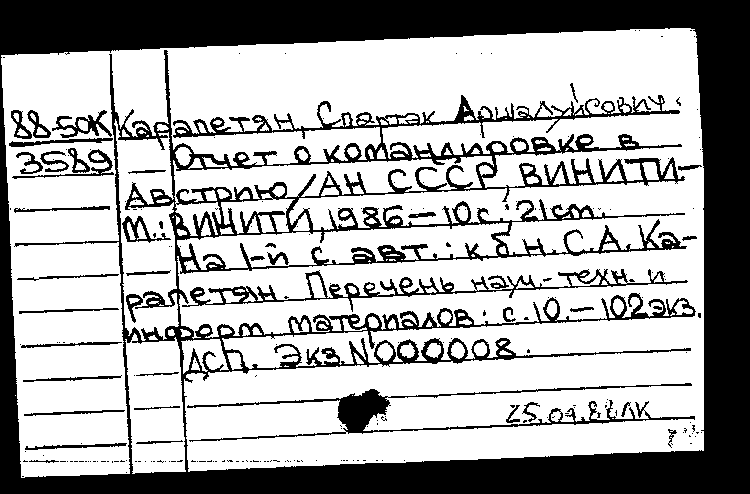 88-50К Карапетян, Спартак Аршалуйсович.
3589 Отчет о командировке в
Австрию/АН СССР, ВИНИТИ.-
М.: ВИНИТИ, 1986.-10с.; 21см.
На 1-й с. авт.: к.б.н. С.А. Ка-
рапетян. Перечень науч.-техн. и
информ. материалов: с.10.-102экз.
ДСП. Экз.N°000008.
25.04.88 ЛК